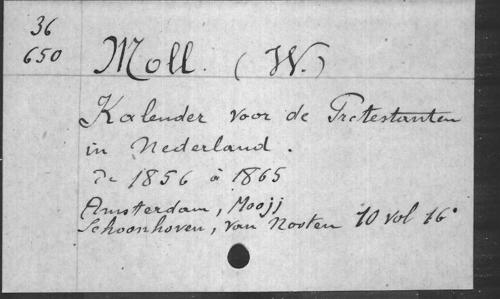 36
650
Moll. (W.)
Kalender voor de Protestanten
in Nederland.
De 1856 à 1865
Amsterdam, Mooij
Schoonhoven, van Nooten 10 vol 16°